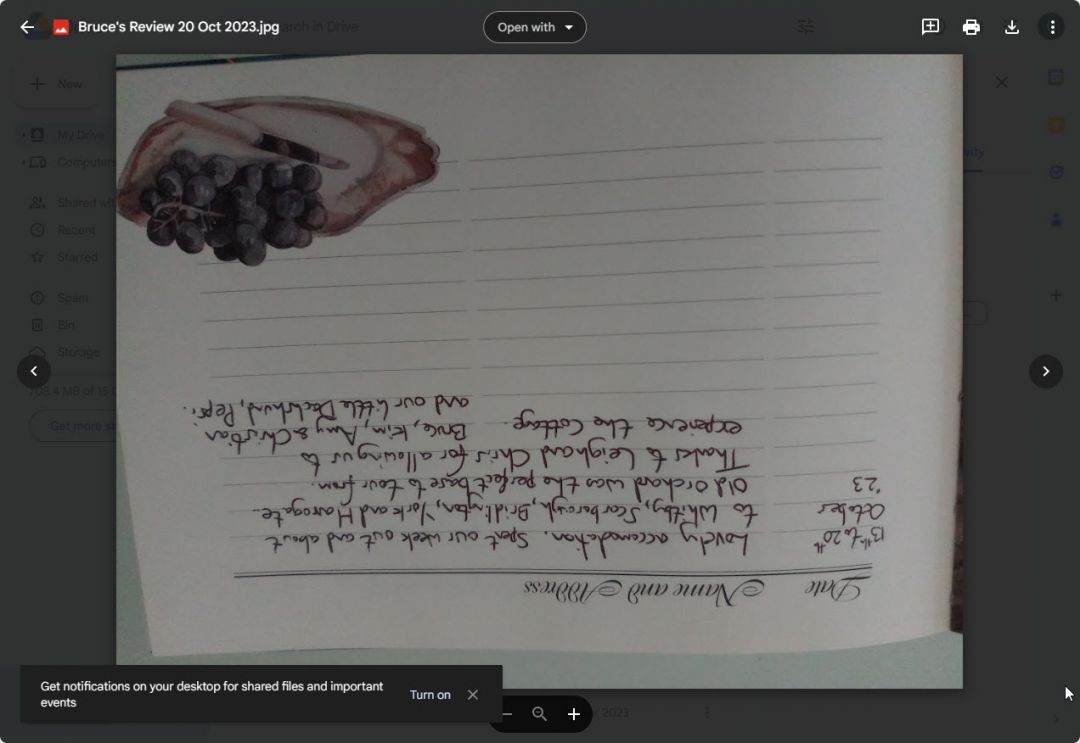 Bruce's Review 20 Oct 2023.jpg
arch in Drive
Open with
New
My Drive
Computers
Shared wit
Recent
Starred
Spam
Bin
Storage
708.4 MB of 15
Get more st
vity
Date Name and Address
13th to 20th Lovely accomodation. Spent our week out and about
October to Whitby, Scarborough, Bridlington, York and Harrogate.
'23 Old Orchard was the perfect base to tour from.
Thanks to Leigh and Chris for allowing us to
experience the Cottage. Bruce, Kim, Amy & Christian
and our little Dachshund, Pepsi.
Get notifications on your desktop for shared files and important
events
Turn on
2023